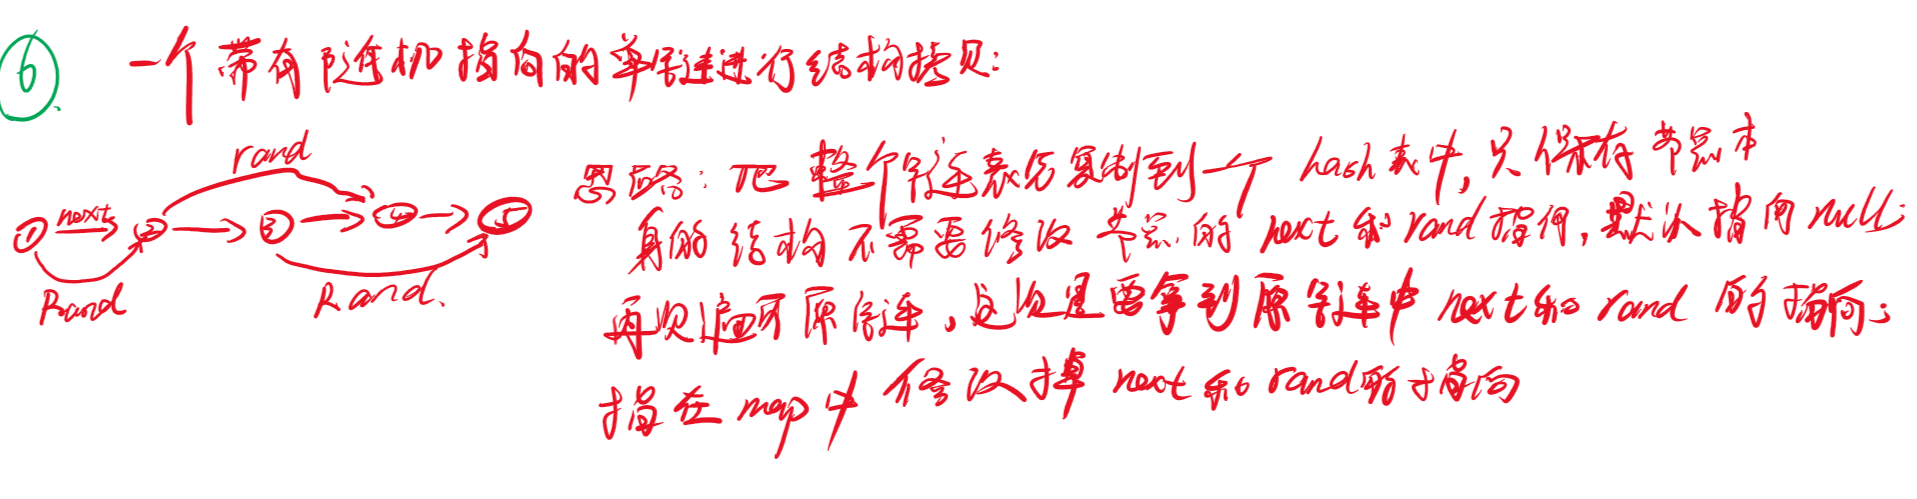 6 一个带有随机指向的单链进行结构拷贝:
rand
next
1 2 3 4 5
Rand
Rand.
思路: 把整个链表先复制到一个 hash表中,只保存节点本
身的结构不需要修改节点的next和rand指向,默认指向null;
再次遍历原链,这次是要拿到原链中next和rand的指向;
指在map中修改掉next和rand的指向